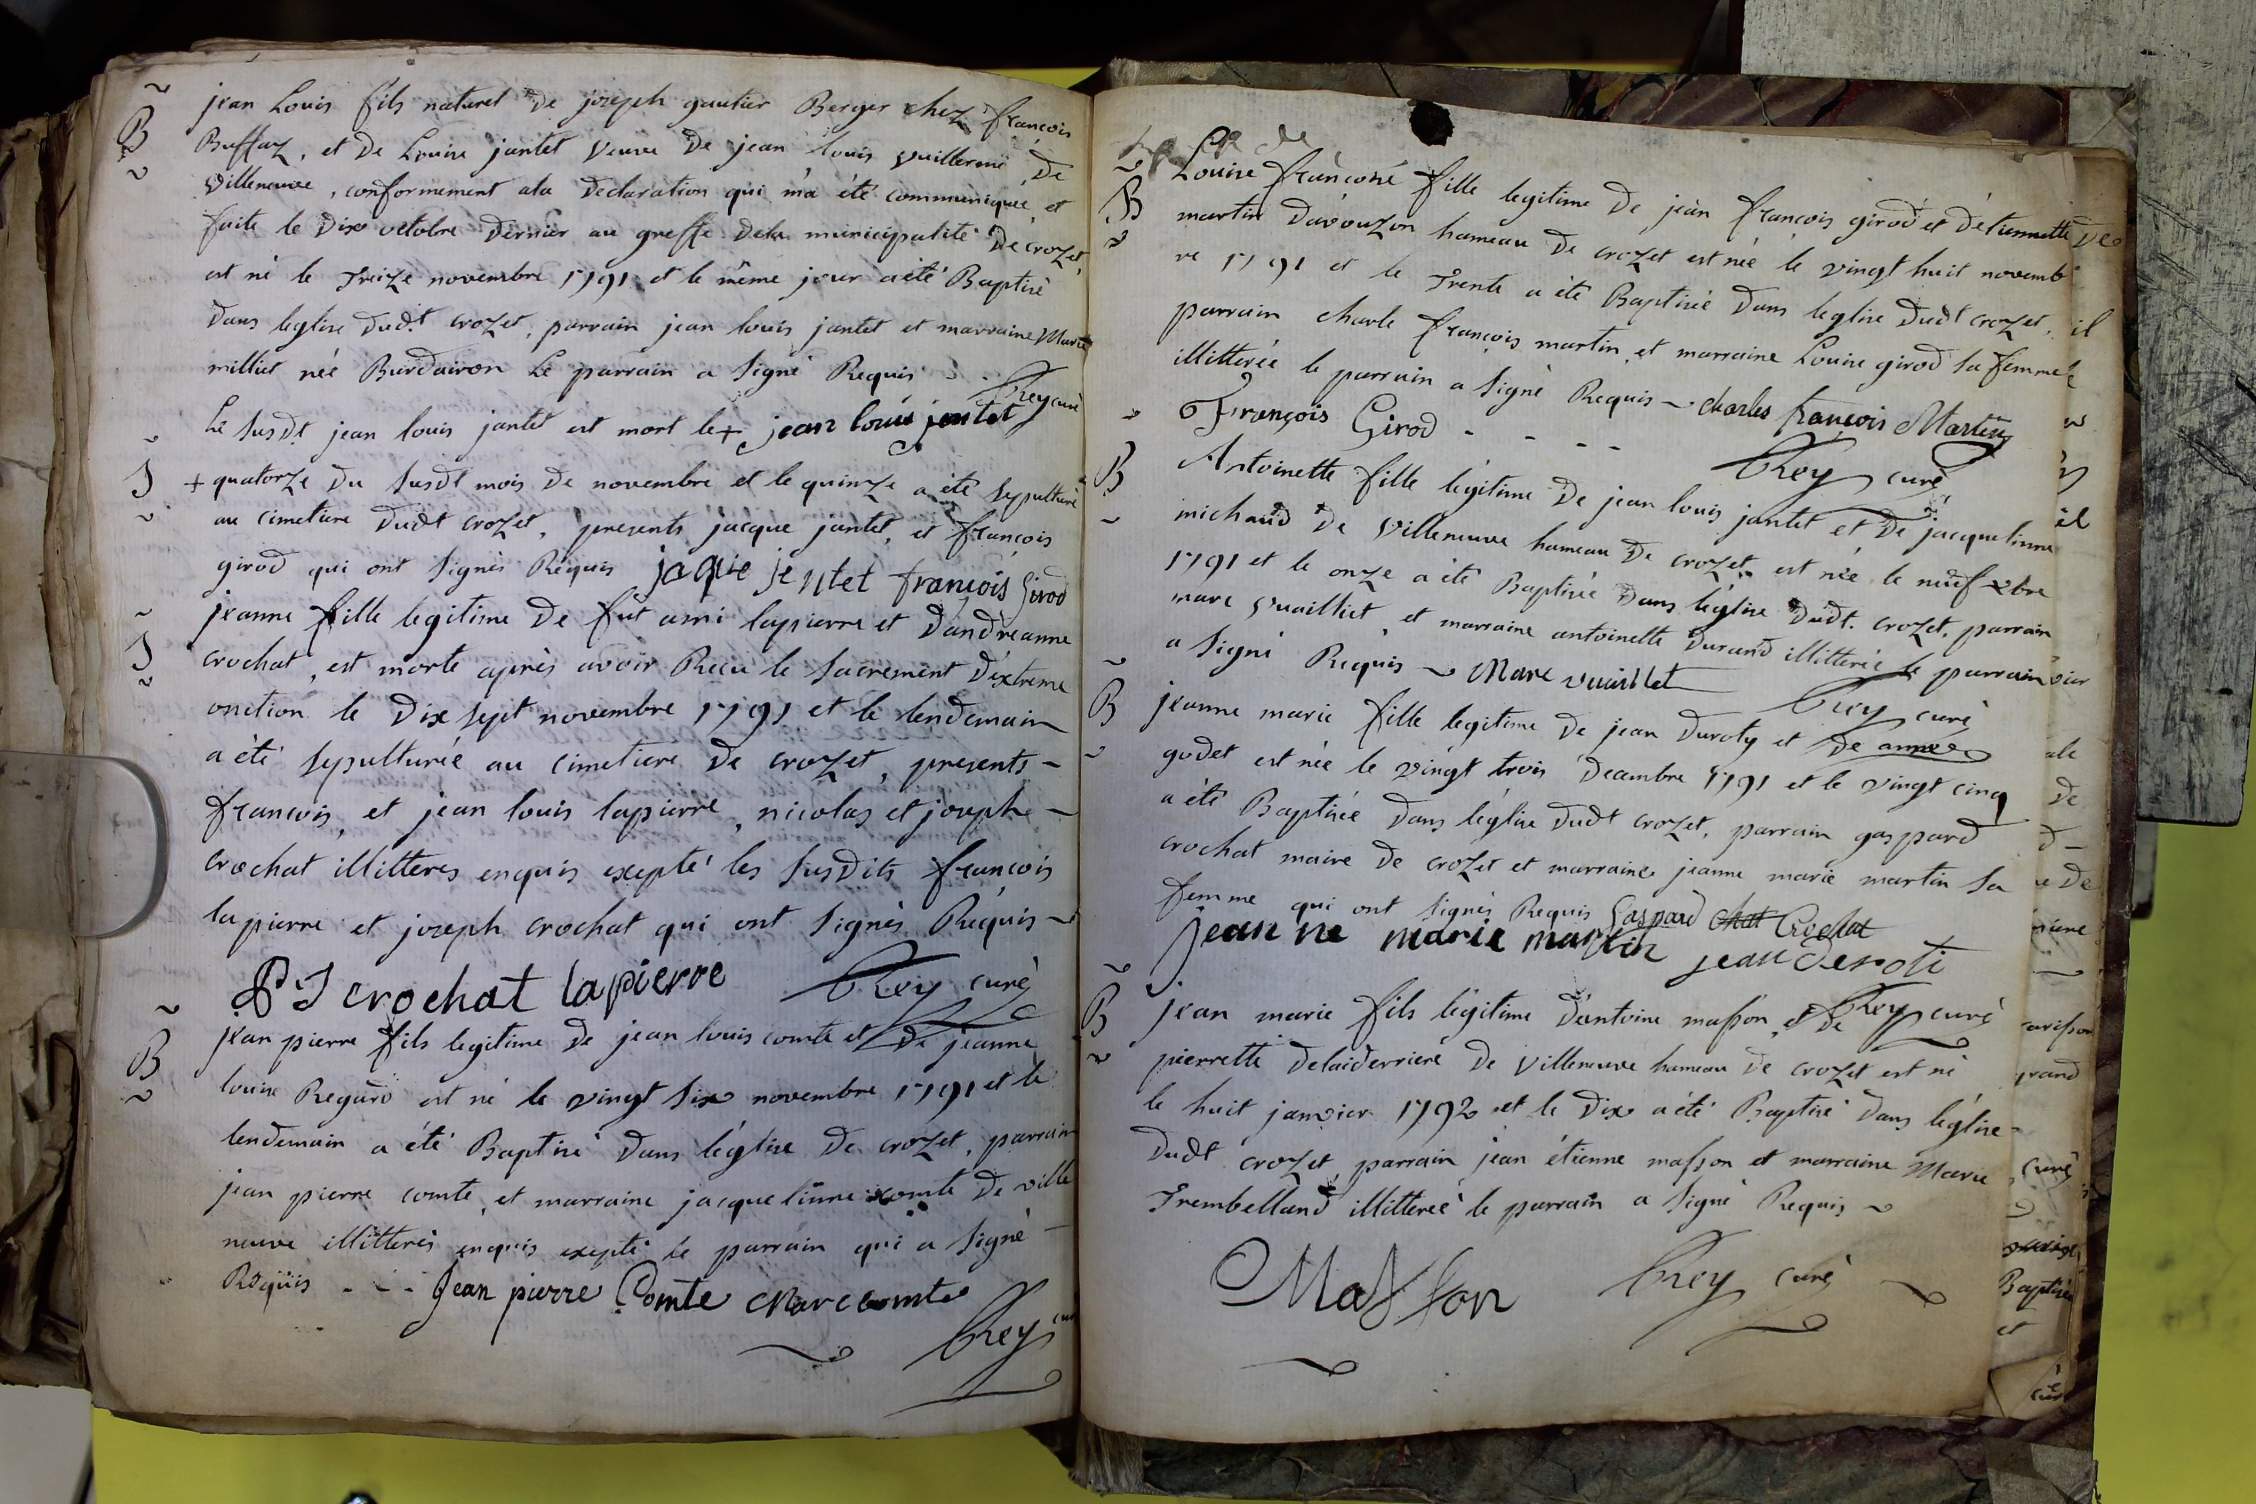 B
jean Louis fils naturel de joseph gautier Berger chez françois
Buffaz, et de Louise jantet veuve de jean louis vuillerme de
villeneuve, conformement ala declaration qui m'a été communiquée et
faite le dix octobre dernier au greffe dela municipalité de crozet,
est né le treize novembre 1791 et le même jour a été Baptisé
dans leglise dudt crozet, parrain jean louis jantet et marraine Marie
milliet née Burdairon Le parrain a signé Requis
Rey curé
Le susdt jean louis jantet est mort le + jean louis jentet
S
+ quatorze du susdt mois de novembre et le quinze a été sepulturé
au cimetiere dudt crozet, presents jacque jantet, et françois
girod qui ont signés Requis jaque jentet françois Girod
S
jeanne fille legitime de fut ami lapierre et d'andréanne
crochat, est morte après avoir Recu le sacrement d'extreme
onction le dix sept novembre 1791 et le lendemain
a été sepulturée au cimetiere de crozet, presents -
francois, et jean louis lapierre, nicolas et joseph -
crochat illitteres enquis expté les susdits françois
lapierre et joseph crochat qui ont signés Requis
crochat lapierre Rey curé
B
jean pierre fils legitime de jean louis comte et de jeanne
louise Regard est né le vingt six novembre 1791 et le
lendemain a été Baptisé dans léglise de crozet, parrain
jean pierre comte, et marraine jacquelinne comte de ville
neuve illitterés enquis expté le parrain qui a signé -
Requis - - - Jean pierre Comte Marc comte
Rey curé
B
Louise françoise fille legitime de jean françois girod et d'etiennette
martin d'avouzon hameau de crozet est née le vingt huit novemb
re 1791 et le trente a été Baptisée dans leglise dudt crozet,
parrain charle françois martin, et marraine Louise girod sa femme
illitterée le parrain a signé Requis ~ charles françois Martin
François Girod - - - -
Rey curé
B
Antoinette fille légitime de jean louis jantet et de jacquelinne
michaud de villeneuve hameau de crozet, est née le neuf xbre
1791 et le onze a été Baptisée dans l'église dudt. crozet, parrain
marc vuailliet, et marraine antoinette durand illitterée le parrain
a signé Requis ~ Marc vuaillet
Rey curé
B
jeanne marie fille legitime de jean duroty et de année
godet est née le vingt trois decembre 1791 et le vingt cinq
a été Baptisée dans léglise dudt crozet, parrain gaspard
crochat maire de crozet et marraine jeanne marie martin sa
femme qui ont signés Requis Gaspard chat Crochat
jean ne marie martin jean deroti
Rey curé
B
jean marie fils légitime d'antoine masson, et de
pierrette delaiderriere de villeneuve hameau de crozet est né
le huit janvier 1792 et le dix a été Baptisé dans léglise
dudt crozet, parrain jean étienne masson et marraine Marie
Trembelland illitterée le parrain a signé Requis ~
Masson Rey curé